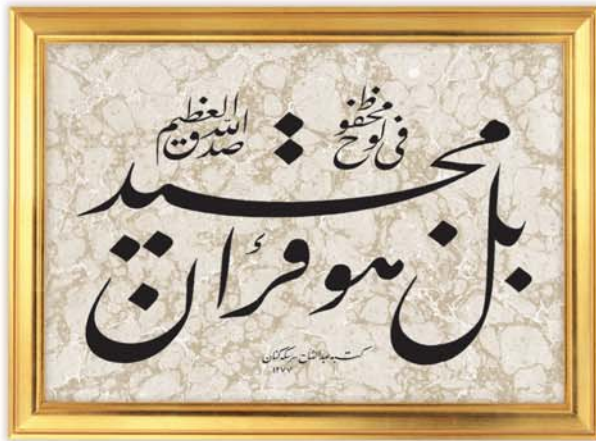 بل هو قرأن مجيد
في لوح محفوظ
صدق الله العظيم
كتبه عبدالفتاح سرسكه كنان
١٢٧٧